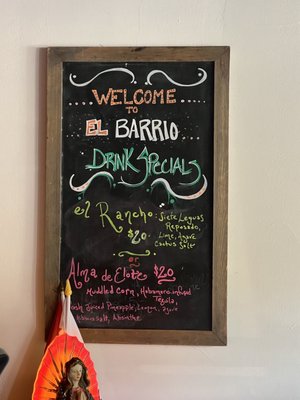 ....WELCOME....
TO
..EL BARRIO....
DRINK SPECIALS
el Rancho: Siete Leguas
Reposado,
$20 Lime, Agave
Cactus Salt
Alma de Elote $20
Muddled Corn, Habanero-infused
Tequila,
Juiced Pineapple, Lemon, Agave
Salt, Absinthe